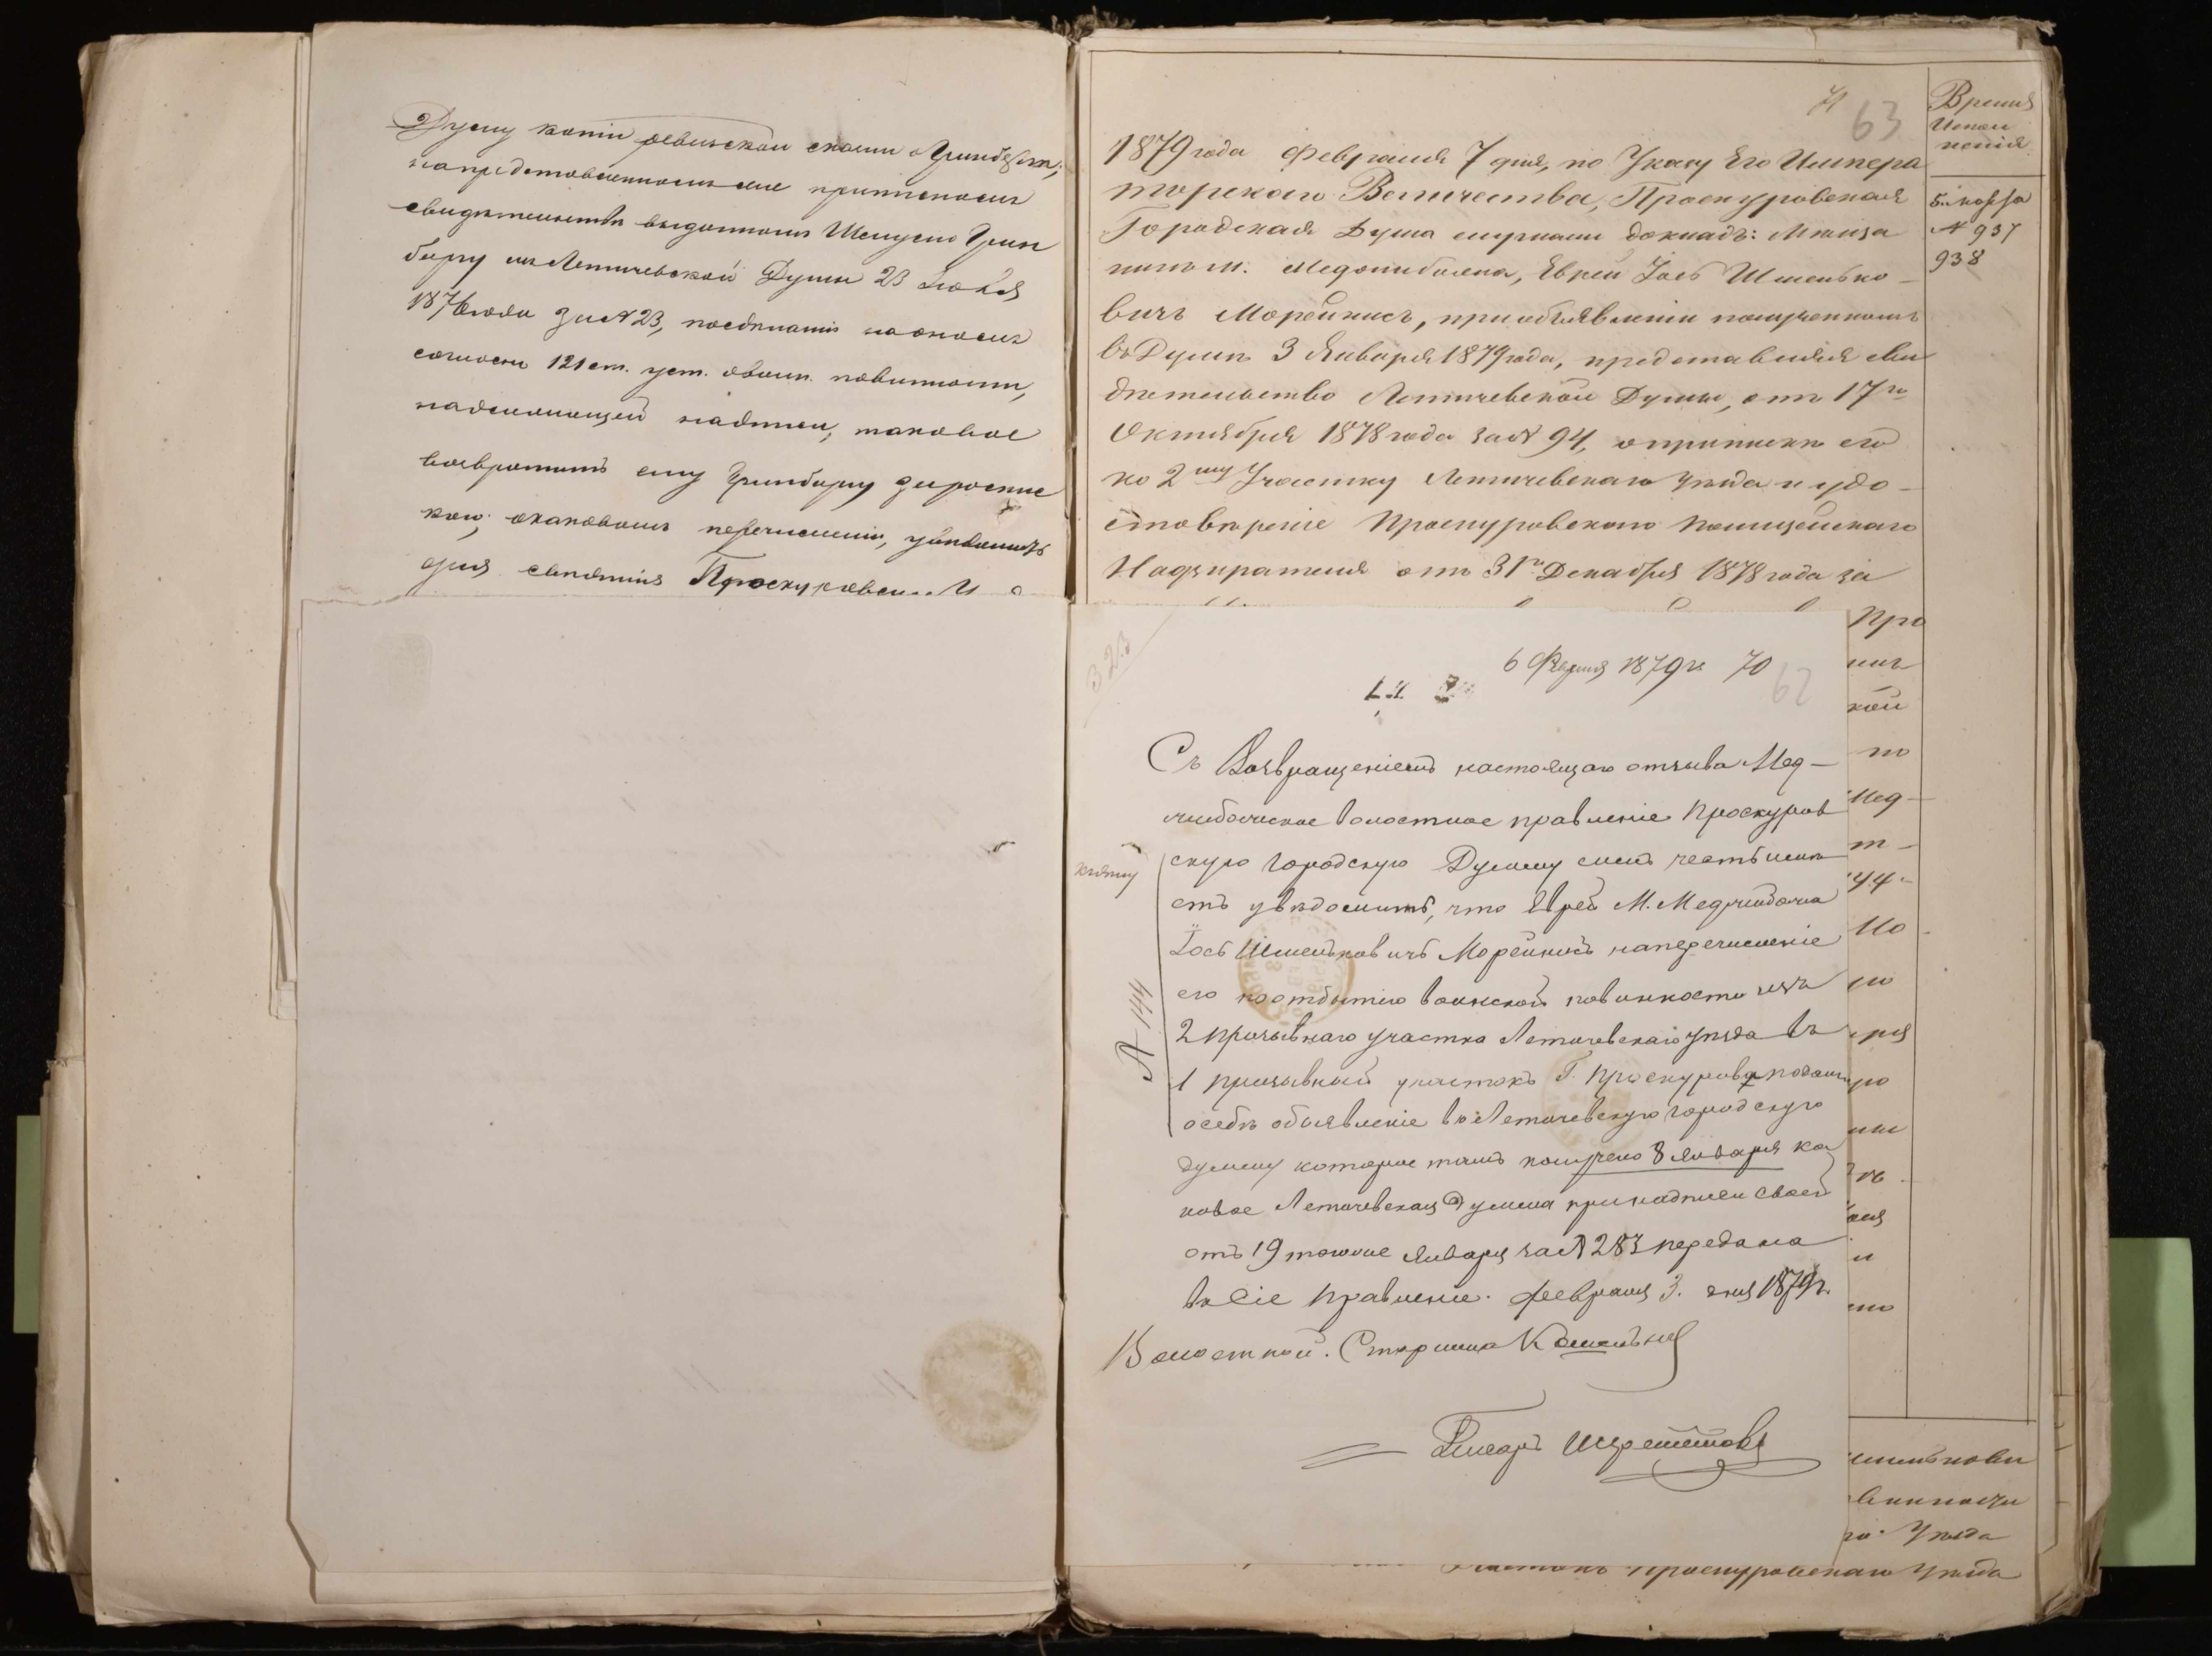 Думу копіи ревизской сказки о Гринбергѣ,
на представленномъ имъ приписномъ
свидѣтельствѣ выданномъ Шелузмо Грин
бергу изъ Летичевской Думы 23
1876 года за № 23, на ономъ
согласно 121 ст. уст. о воин. повинности,
надлежащей надписи, таковое
возвратить ему Гринбергу
кою, о каковомъ перечисленіи, увѣдомить
для свѣдѣнія Проскуровск
71 63
1879 года Февраля 7 дня, по Указу Его Импера
торскаго Величества, Проскуровская
Городская Дума слушали докладъ: Мѣща
нинъ м. Меджибожа, Еврей Іось Шмелько-
вичъМорейнисъ, при объявленіи полученномъ
въ Думѣ 3 Января 1879 года, представляя сви
дѣтельство Летичевской Думы, отъ 17го
Октября 1878 года за № 94, о припискѣ его
ко 2му Участку Летичевскаго Уѣзда и удо-
стовѣреніе Проскуровскаго Полицейскаго
Надзирателя отъ 31го Декабря 1878 года за
Время
Испол
ненія
№ 937
938
323
6 Февраля 1879 г. 70
62
Съ возвращеніемъ настоящаго отзыва Мед-
жибожское Волостное правленіе Проскуров
скую Городскую Думу симъ честь имѣ
етъ увѣдомить, что Еврей М. Меджибожа
Іось Шмельковичъ Морейнисъ на перечисленіе
его по отбытію воинской повинности изъ
2 призывнаго участка Летичевскаго уѣзда въ
1 призывный участокъ Г. Проскурова подалъ
о себѣ объявленіе въ Летичевскую городскую
думу которое тамъ получено 8 Января ка
ковое Летичевская Дума при надписи своей
отъ 19 того же Января за № 283 передала
въ сіе Правленіе. Февраля 3. дня 1879 г.
№ 144
Волостной. Старшина
Писарь
Про
кой
по
Мед-
т-
уч-
Мо
го
ря
ро
и
то
шмелькови
винности
го Уѣзда
Участокъ Проскуровскаго Уѣзда